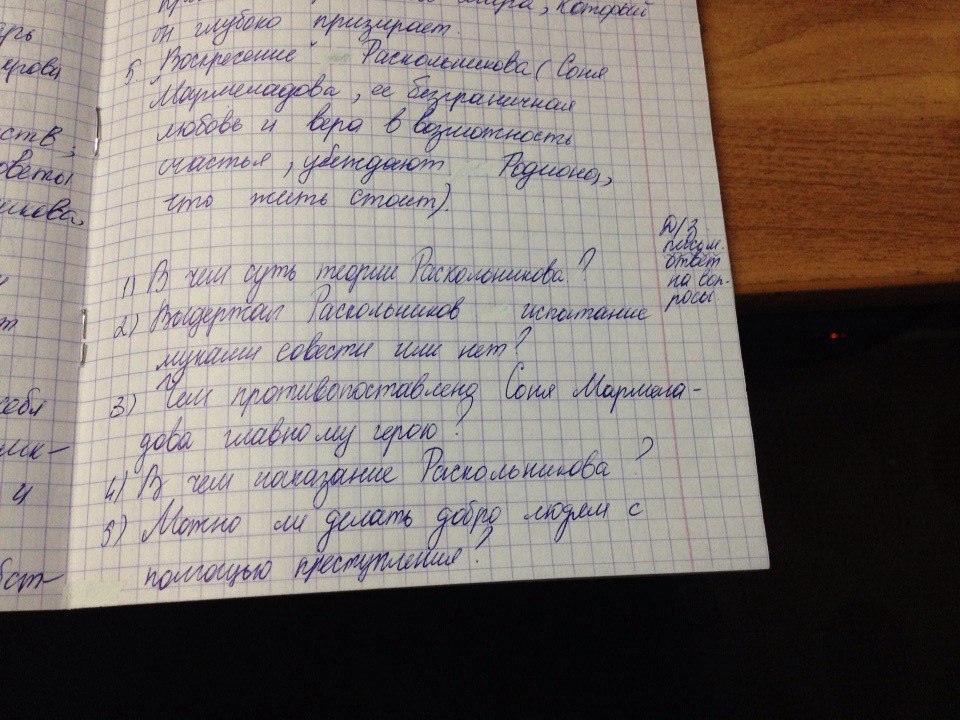 арь
ерова
ств,
оветы
икова,
т
себя
мк-
и
бст-
мира, который
он глубоко призирает.
5. Воскресение Раскольникова (Соня
Мармеладова, ее безграничная
любовь и вера в возможность
счастья, убеждают Родиона,
что жить стоит).
Д/З
письм.
ответ
на воп-
росы
1) В чем суть теории Раскольникова?
2) Выдержал Раскольников испытание
муками совести или нет?
3) Чем противопоставлена Соня Мармела-
дова главному герою?
4) В чем наказание Раскольникова?
5) Можно ли делать добро людям с
помощью преступления?